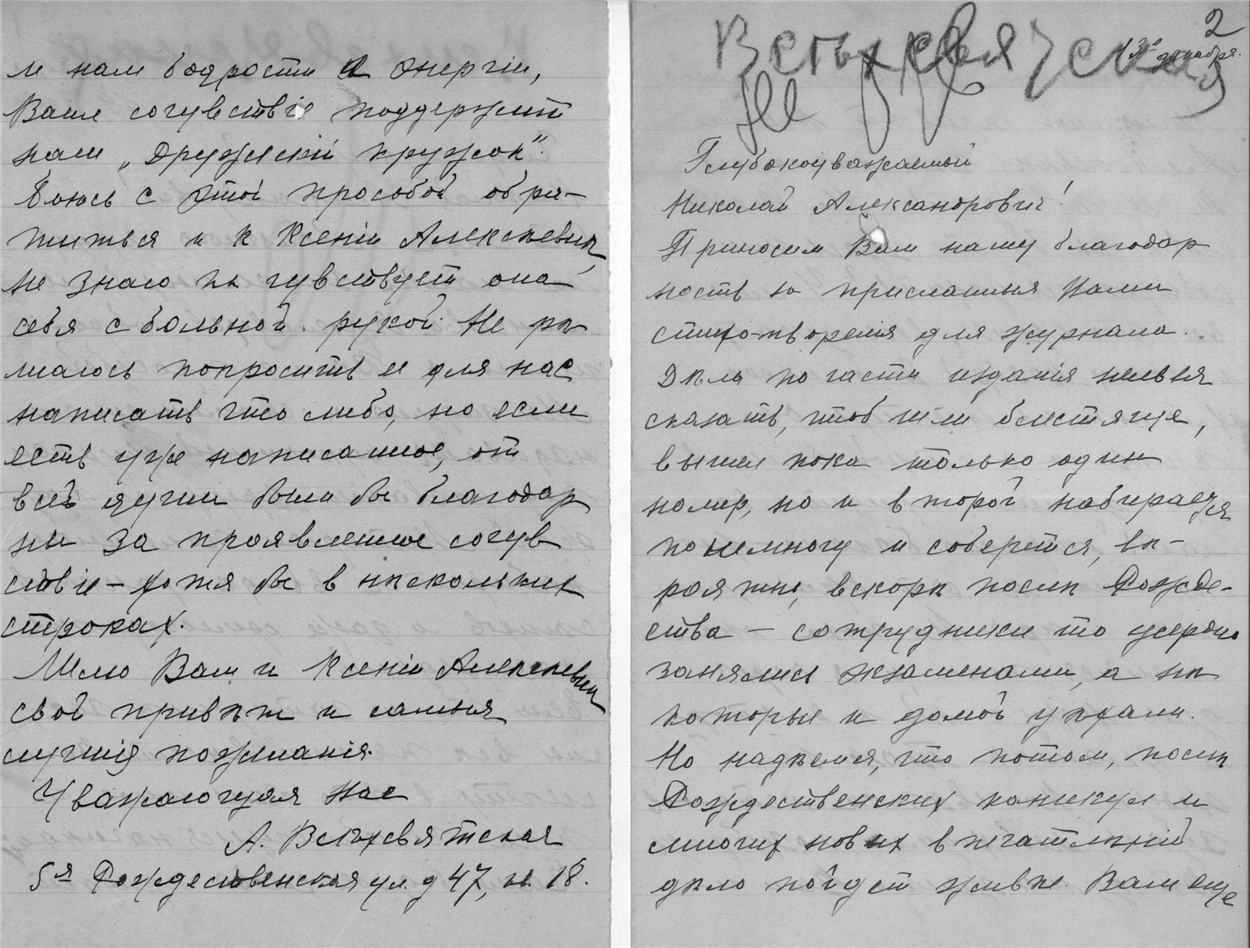 и нам бодрости и энергіи,
Ваше сочувствіе поддержит
наш „Дружескій кружок".
Боюсь с этой просьбой обра-
титься и к Ксеніи Алексѣевнѣ,
не знаю как чувствует она
себя с больной рукой. Не рѣ
шаюсь попросить ее для нас
написать что либо, но если
есть уже написанное, от
всей души были бы благодар
ны за проявленное сочув
ствіе – хотя бы в нѣскольких
строках.
Шлю Вам и Ксеніи Алексѣевнѣ
свой привѣт и самыя
лучшія пожеланія.
Уважающая Вас
А. Всѣхсвятская
5я Рождественская ул. д 47, к. 18.
Всѣхсвятская
2
13го декабря.
Глубокоуважаемый
Николай Александрович!
Приносим Вам нашу благодар
ность за присланныя Вами
стихотворенія для журнала.
Дѣла по части изданія нельзя
сказать, чтоб шли блестяще,
вышел пока только один
номер, но и второй набирается
понемногу и соберется, вѣ-
роятно, вскорѣ послѣ Рожде-
ства – сотрудники то усердно
занялись экзаменами, а нѣ
которые и домой уѣхали.
Но надѣемся, что потом, послѣ
Рождественских каникул и
многих новых впечатлѣній
дѣло пойдет живѣе. Вам еще